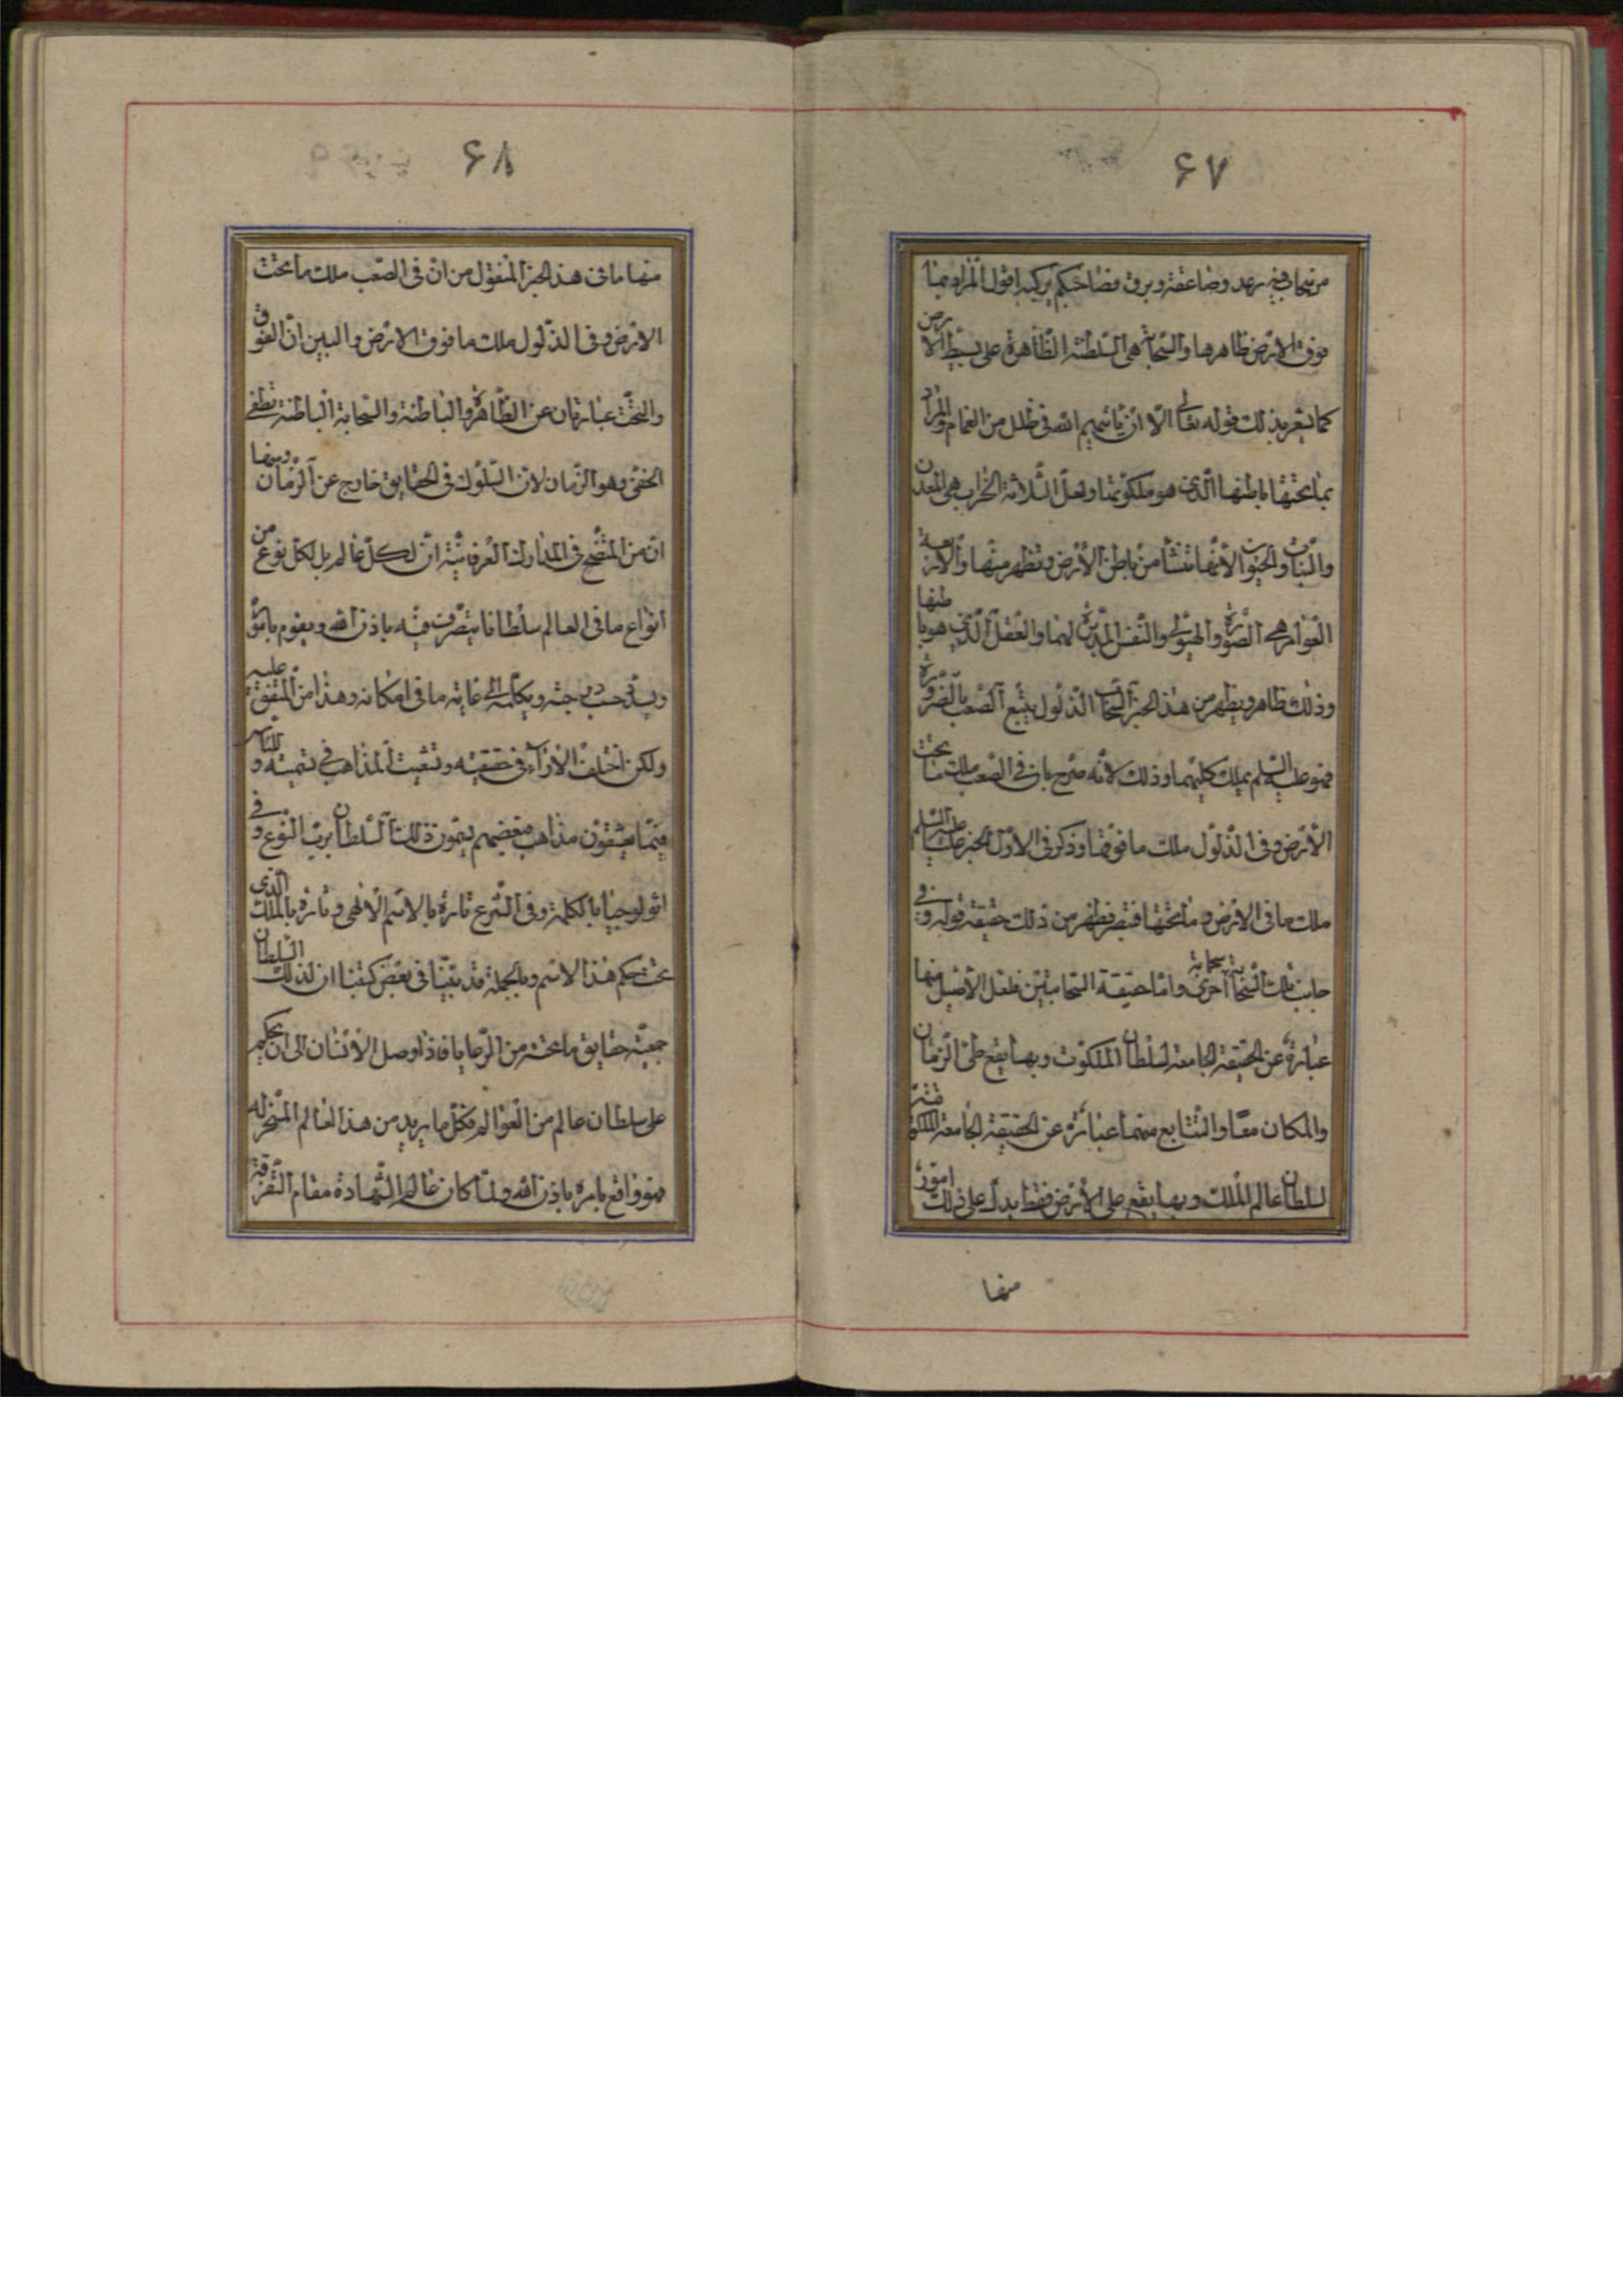 ۶۷
من سحاب فيه رعد وصاعقة وبرق فصاحبكم يركبه اقول المراد بما
فوق الارض ظاهرها والسحابة هى السلطنة الظاهرة على بسيط الارض
كما يشعر بذلك قوله تعالى الّا ان ياتيهم الله فى ظلل من الغمام والمراد
بما تحتها باطنها الّذى هو ملكوتها ولعلّ الثّلاثة الخراب هى المعدن
والنبات والحيوان لانّها تنشأ من باطن الأرض وتظهر منها والاربعة
العوامر هى الصّورة والهيولى والنّفس المدبّرة لهما والعقل الّذى هو باطنها
وذلك ظاهر ويظهر من هذا الخبر انّ السّحاب الذّلول يتبع الصّعب بالضّرورة
فهو عليه السلم يملك كليهما وذلك لانّه صرّح بان فى الصّعب ملك ما تحت
الأرض وفى الذّلول ملك ما فوقها وذكر فى الاوّل الخبر عليه السلم
ملك ما فى الارض وما تحتها فتبصر فظهر من ذلك حقيقة قوله و فى
جانب تلك السّحابة سحابة اخرى وامّا حقيقة السّحابتين فلعل الأصل منها
عبارة عن الحقيقة الجامعة لسلطان الملكوت وبها يقع طىّ الزّمان
والمكان معًا والتّابع منهما عبارة عن الحقيقة الجامعة الملكية
لسلطان عالم الملك وبها يقع طى الأرض فقط يدلّ على ذلك امور
منها
۶۸
منها ما فى هذا الخبر المنقول من انّ فى الصّعب ملك ما تحت
الارض وفى الذّلول ملك ما فوق الارض والبين انّ الفوق
والتحت عبارتان عن الظّاهرة والباطنة والسّحابة الباطنة تطوى
الخفى وهو الزّمان لانّ السّلوك فى الحقايق خارج عن الزّمان ومنها
انّ من المتّضح فى المدارك العرفانيّة انّ لكلّ عالم بل لكلّ نوع من
انواع ما فى العالم سلطانا يتصّرف فيه باذن الله ويقوم باموره
ويدبّر حسب درجته ويكمّله الى غاية ما فى امكانه وهذا من المتّفق عليه
ولكن اختلف الاراء فى حقيقته وتشعبت المذاهب فى تسميته و للنّاس
فيما يعشقون مذاهب فبعضهم يسمّون ذلك السّلطان بربّ النّوع و فى
اثولوجيا بالكلمة وفى الشّرع تارة بالاسم الالهى وتارة بالملك الّذى
تحت حكم هذا الاسم وبالجملة قد بيّنا فى بعض كتبنا ان لذلك السلطان
جمعيّة حقايق ما تحته من الرّعايا فاذا وصل الأنسان الى ان يحكم
على سلطان عالم من العوالم فكلّ ما يريد من هذا العالم المسخّر له
فهو واقع بامره باذن الله ولمّا كان عالم الشّهادة مقام التّفرقة